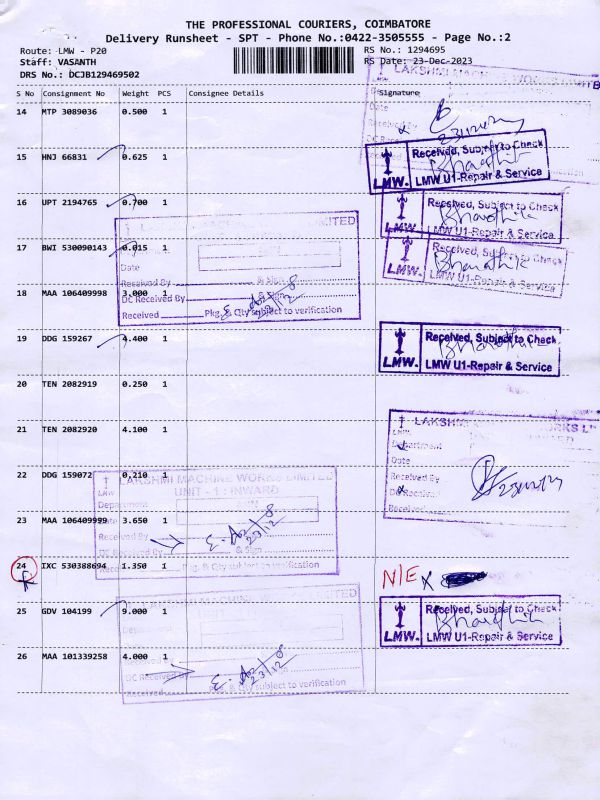 THE PROFESSIONAL COURIERS, COIMBATORE
Delivery Runsheet - SPT - Phone No.:0422-3505555 - Page No.:2
Route: LMW - P20
RS No.: 1294695
Staff: VASANTH
RS Date: 23-Dec-2023
DRS No.: DCJB129469502
S No Consignment No Weight PCS Consignee Details Signature
14 MTP 3089036 0.500 1
15 HNJ 66831 0.625 1
Received, Subject to Check
LMW. LMW U1-Repair & Service
16 UPT 2194765 0.700 1
Received, Subject to Check
LMW. LMW U1-Repair & Service
17 BWI 530090143 0.015 1
Received, Subject to Check
LMW. LMW U1-Repair & Service
Date
Received By & Sign
18 MAA 106409998 3.000 1
DC Received By & Sign
Received Pkg. & Qty subject to verification
19 DDG 159267 4.400 1
Received, Subject to Check
LMW. LMW U1-Repair & Service
20 TEN 2082919 0.250 1
21 TEN 2082920 4.100 1
Department
Date
Received By
DC Received
Received
22 DDG 159072 0.210 1
LAKSHMI MACHINE WORKS LIMITED
UNIT - 1 : INWARD
LMW
Department
23 MAA 106409999 3.650 1
Received By
DC Received By & Sign
24 IXC 530388694 1.350 1
Received Pkg. & Qty subject to verification
N/E
25 GDV 104199 9.000 1
Received, Subject to Check
LMW. LMW U1-Repair & Service
26 MAA 101339258 4.000 1
DC Received By
Received Pkg. & Qty subject to verification